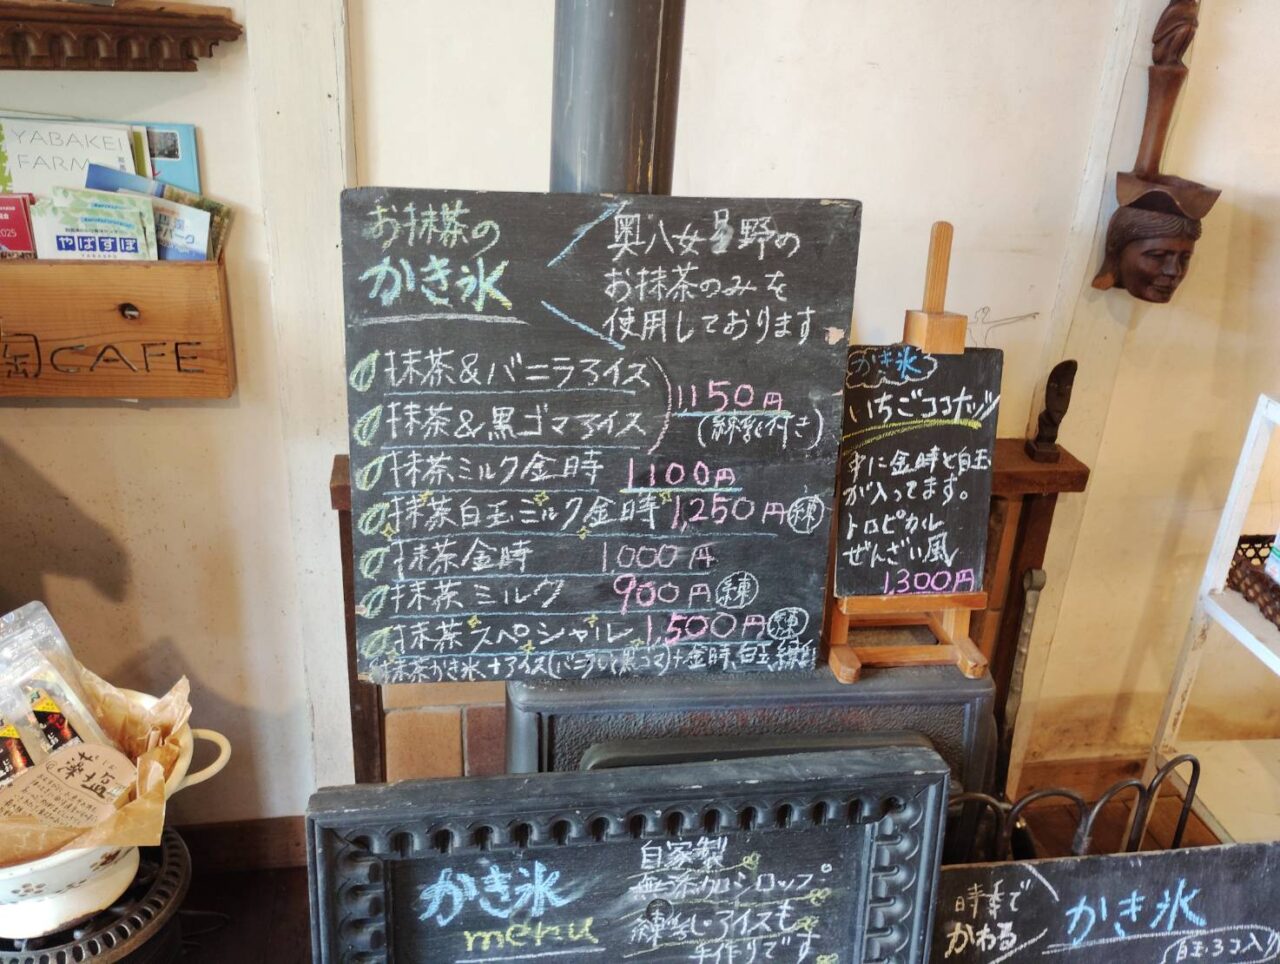 YABAKEI
FARM
2025
やばすぽ
CAFE
お抹茶の
かき氷
奥八女星野の
お抹茶のみを
使用しております
抹茶&バニラアイス
抹茶&黒ゴマアイス
1150円
(練乳付き)
抹茶ミルク金時 1100円
抹茶白玉ミルク金時 1,250円 練
抹茶金時 1,000円
抹茶ミルク 900円 練
抹茶スペシャル 1,500円 練
抹茶かき氷+アイス(バニラ 黒ゴマ)+金時、白玉、練乳
かき氷
いちごココナッツ
中に金時と白玉
が入ってます。
トロピカル
ぜんざい風
1,300円
藻塩
かき氷
menu
自家製
無添加シロップ。
練乳・アイスも
手作りです
時季で
かわる
かき氷
白玉・3コ入り